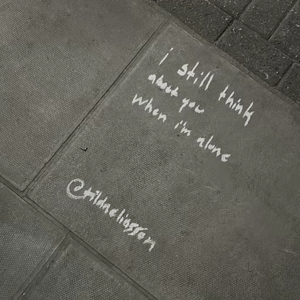 i still think
about you
when i'm alone
@tildaeliasson